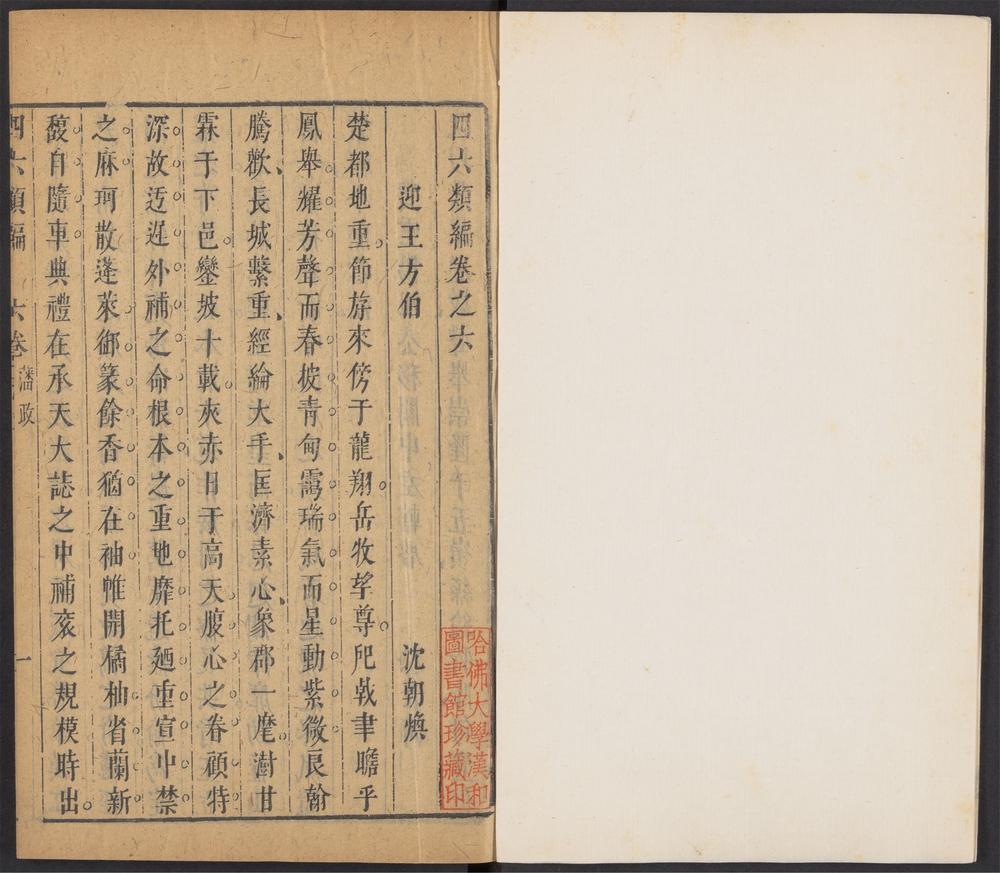 四六類編卷之六
迎王方伯　沈朝煥
楚都地重節斿來傍于龍翔岳牧望尊戺㦸聿瞻乎
鳳舉耀芳聲而春披青甸靄瑞氣而星動紫微良翰
騰歡長城繫重經綸大手匡濟素心象郡一麾澍甘
霖于下邑鑾坡十載夾赤日于高天腹心之眷顧特
深故迓遲外補之命根本之重地靡托廼重宣中禁
之麻珂散蓬萊御篆餘香猶在袖帷開橘柚省蘭新
馥自隨車典禮在承天大誌之中補衮之規模時出
四六類編　六卷　藩政　一
哈佛大學漢和
圖書館珍藏印